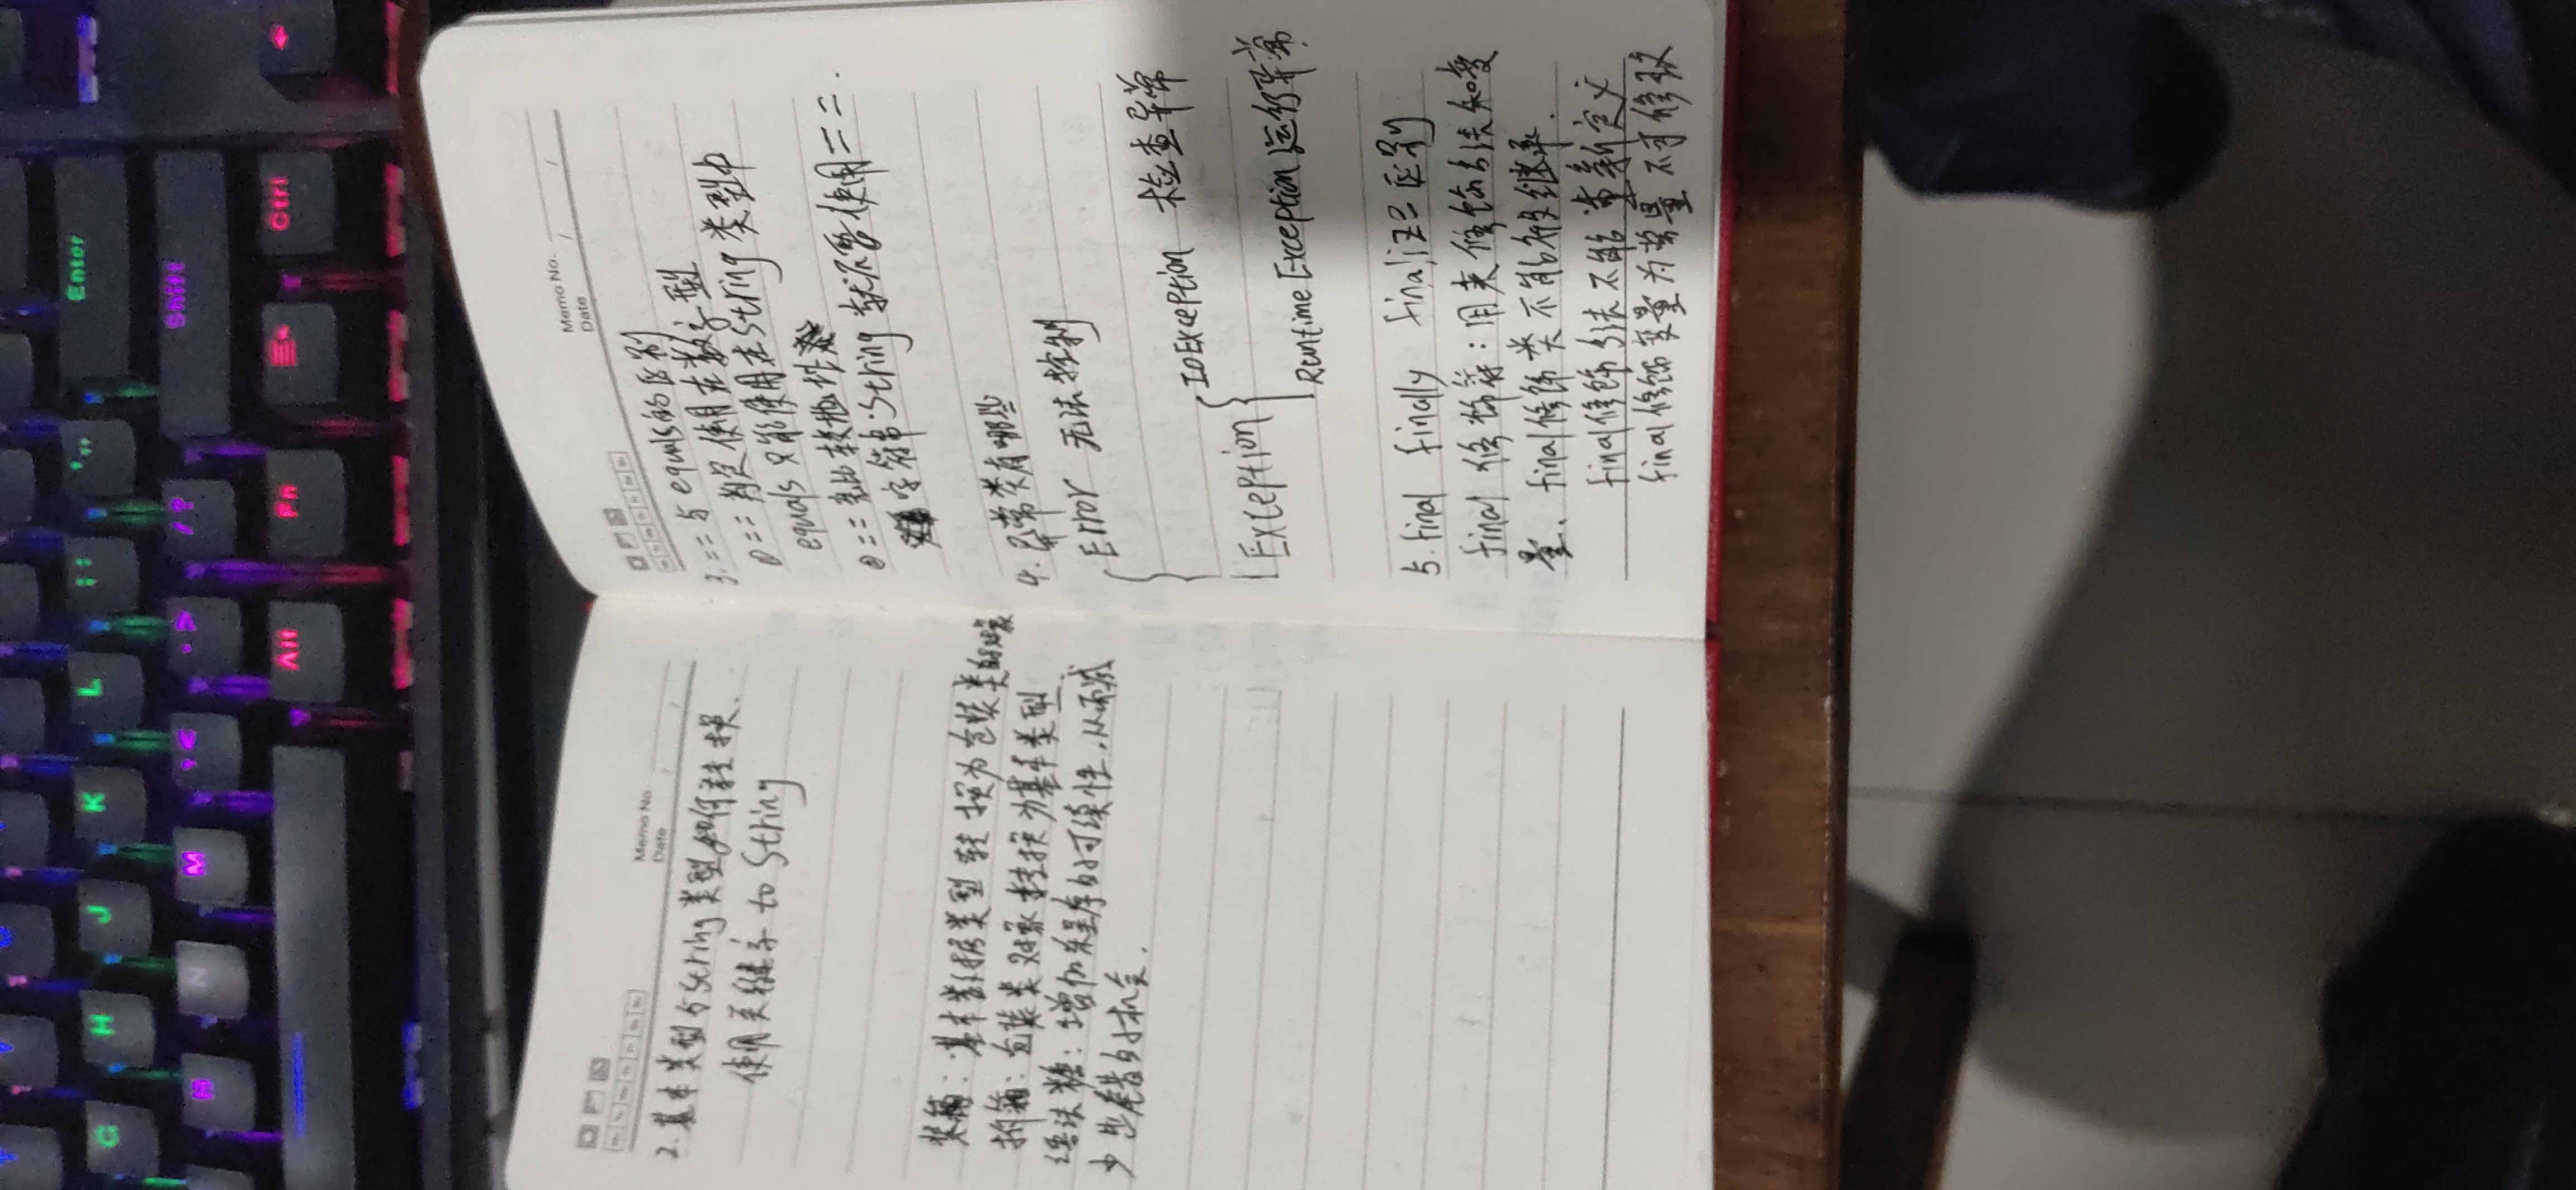 G H J K L ; : ' " Enter
N M , < . > / ? Shift
Alt Fn Ctrl
Memo No.
Date / /
2. 基本类型与String类型如何转换.
使用关键字 to String
装箱: 基本数据类型 转换为包装类的对象
拆箱: 包装类对象转换为基本类型
语法糖: 增加程序的可读性,从而减
少出错的机会.
Memo No.
Date / /
3. == 与 equals的区别
① == 判定使用在数字型
equals 只能使用在String 类型中
② == 来比较地址
字符串String 就不要使用==.
4. 异常类有哪些
Error 无法控制
IOException 检查异常
Exception
Runtime Exception 运行异常
5. final finally finalize 区别
final 修饰符: 用来修饰方法和变
量、final修饰类不能被继承.
final修饰方法不能重新定义
final修饰变量为常量不可修改